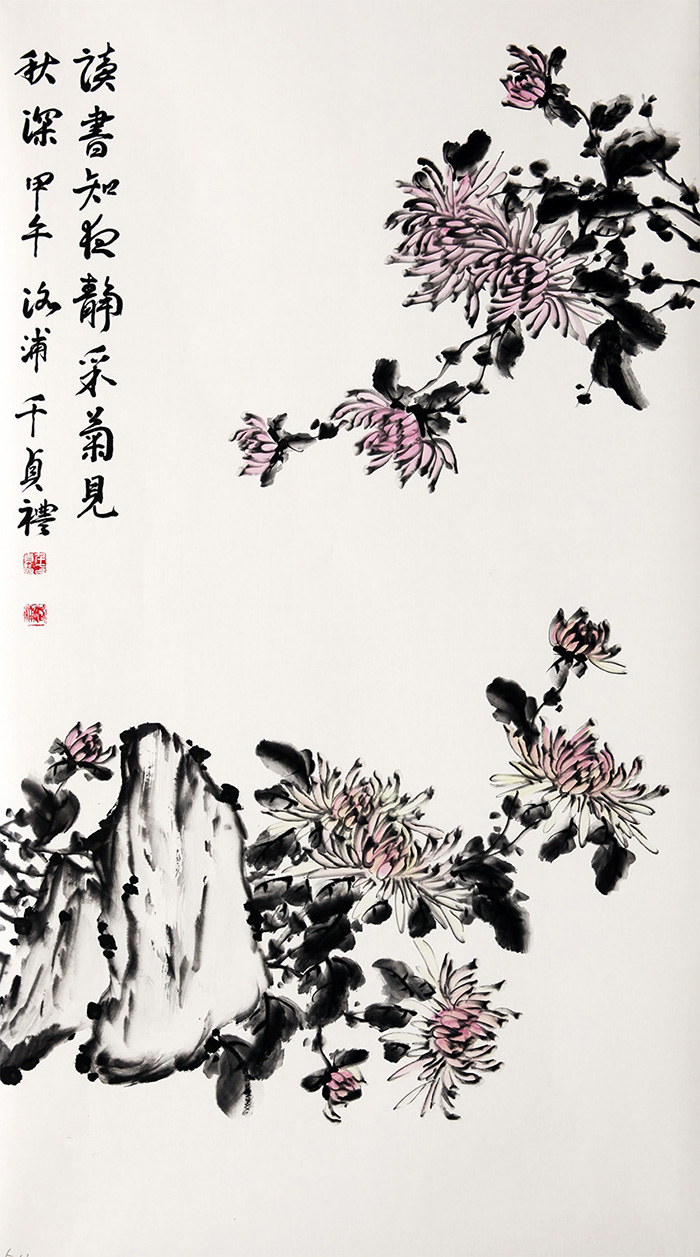 讀書知夜靜采菊見
秋深 甲午 洛浦 千貞禮